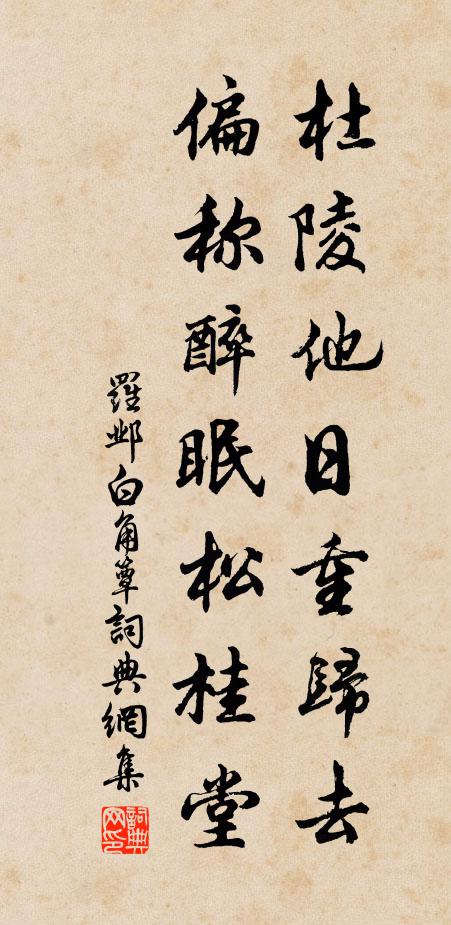 杜陵他日重歸去
偏称醉眠松桂堂
羅邺白角簟詞典網集
詞典网印